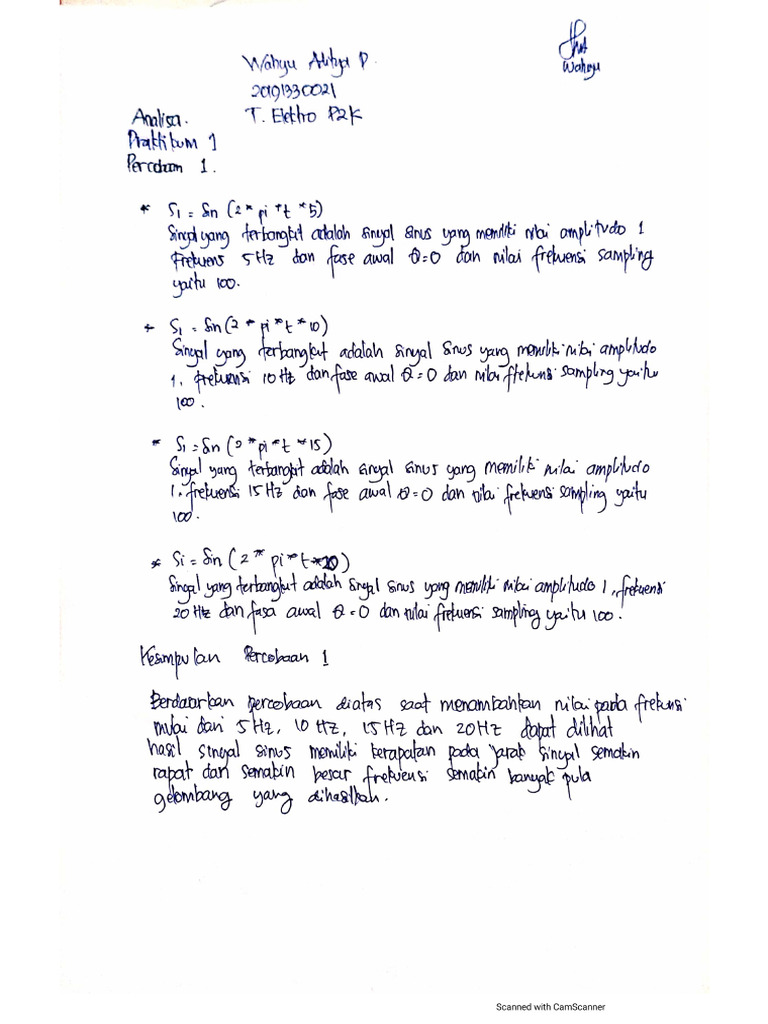 Wahyu Aditya P.
Wahyu
20191330021
Analisa. T. Elektro P2K
Praktikum 1
Percobaan 1.
* S1 = Sin (2 * pi * t * 5)
Sinyal yang terbangkit adalah sinyal sinus yang memiliki nilai amplitudo 1
frekuensi 5 Hz dan fase awal θ=0 dan nilai frekuensi sampling
yaitu 100.
* S1 = Sin (2 * pi * t * 10)
Sinyal yang terbangkit adalah sinyal sinus yang memiliki nilai amplitudo
1, frekuensi 10 Hz dan fase awal θ=0 dan nilai frekuensi sampling yaitu
100.
* S1 = Sin (2 * pi * t * 15)
Sinyal yang terbangkit adalah sinyal sinus yang memiliki nilai amplitudo
1, frekuensi 15 Hz dan fase awal θ=0 dan nilai frekuensi sampling yaitu
100.
* Si = Sin (2 * pi * t * 20)
Sinyal yang terbangkit adalah sinyal sinus yang memiliki nilai amplitudo 1, frekuensi
20 Hz dan fasa awal θ=0 dan nilai frekuensi sampling yaitu 100.
Kesimpulan Percobaan 1
Berdasarkan percobaan diatas saat menambahkan nilai pada frekunsi
mulai dari 5 Hz, 10 Hz, 15 Hz dan 20 Hz dapat dilihat
hasil sinyal sinus memiliki kerapatan pada jarak sinyal semakin
rapat dan semakin besar frekuensi semakin banyak pula
gelombang yang dihasilkan.
Scanned with CamScanner